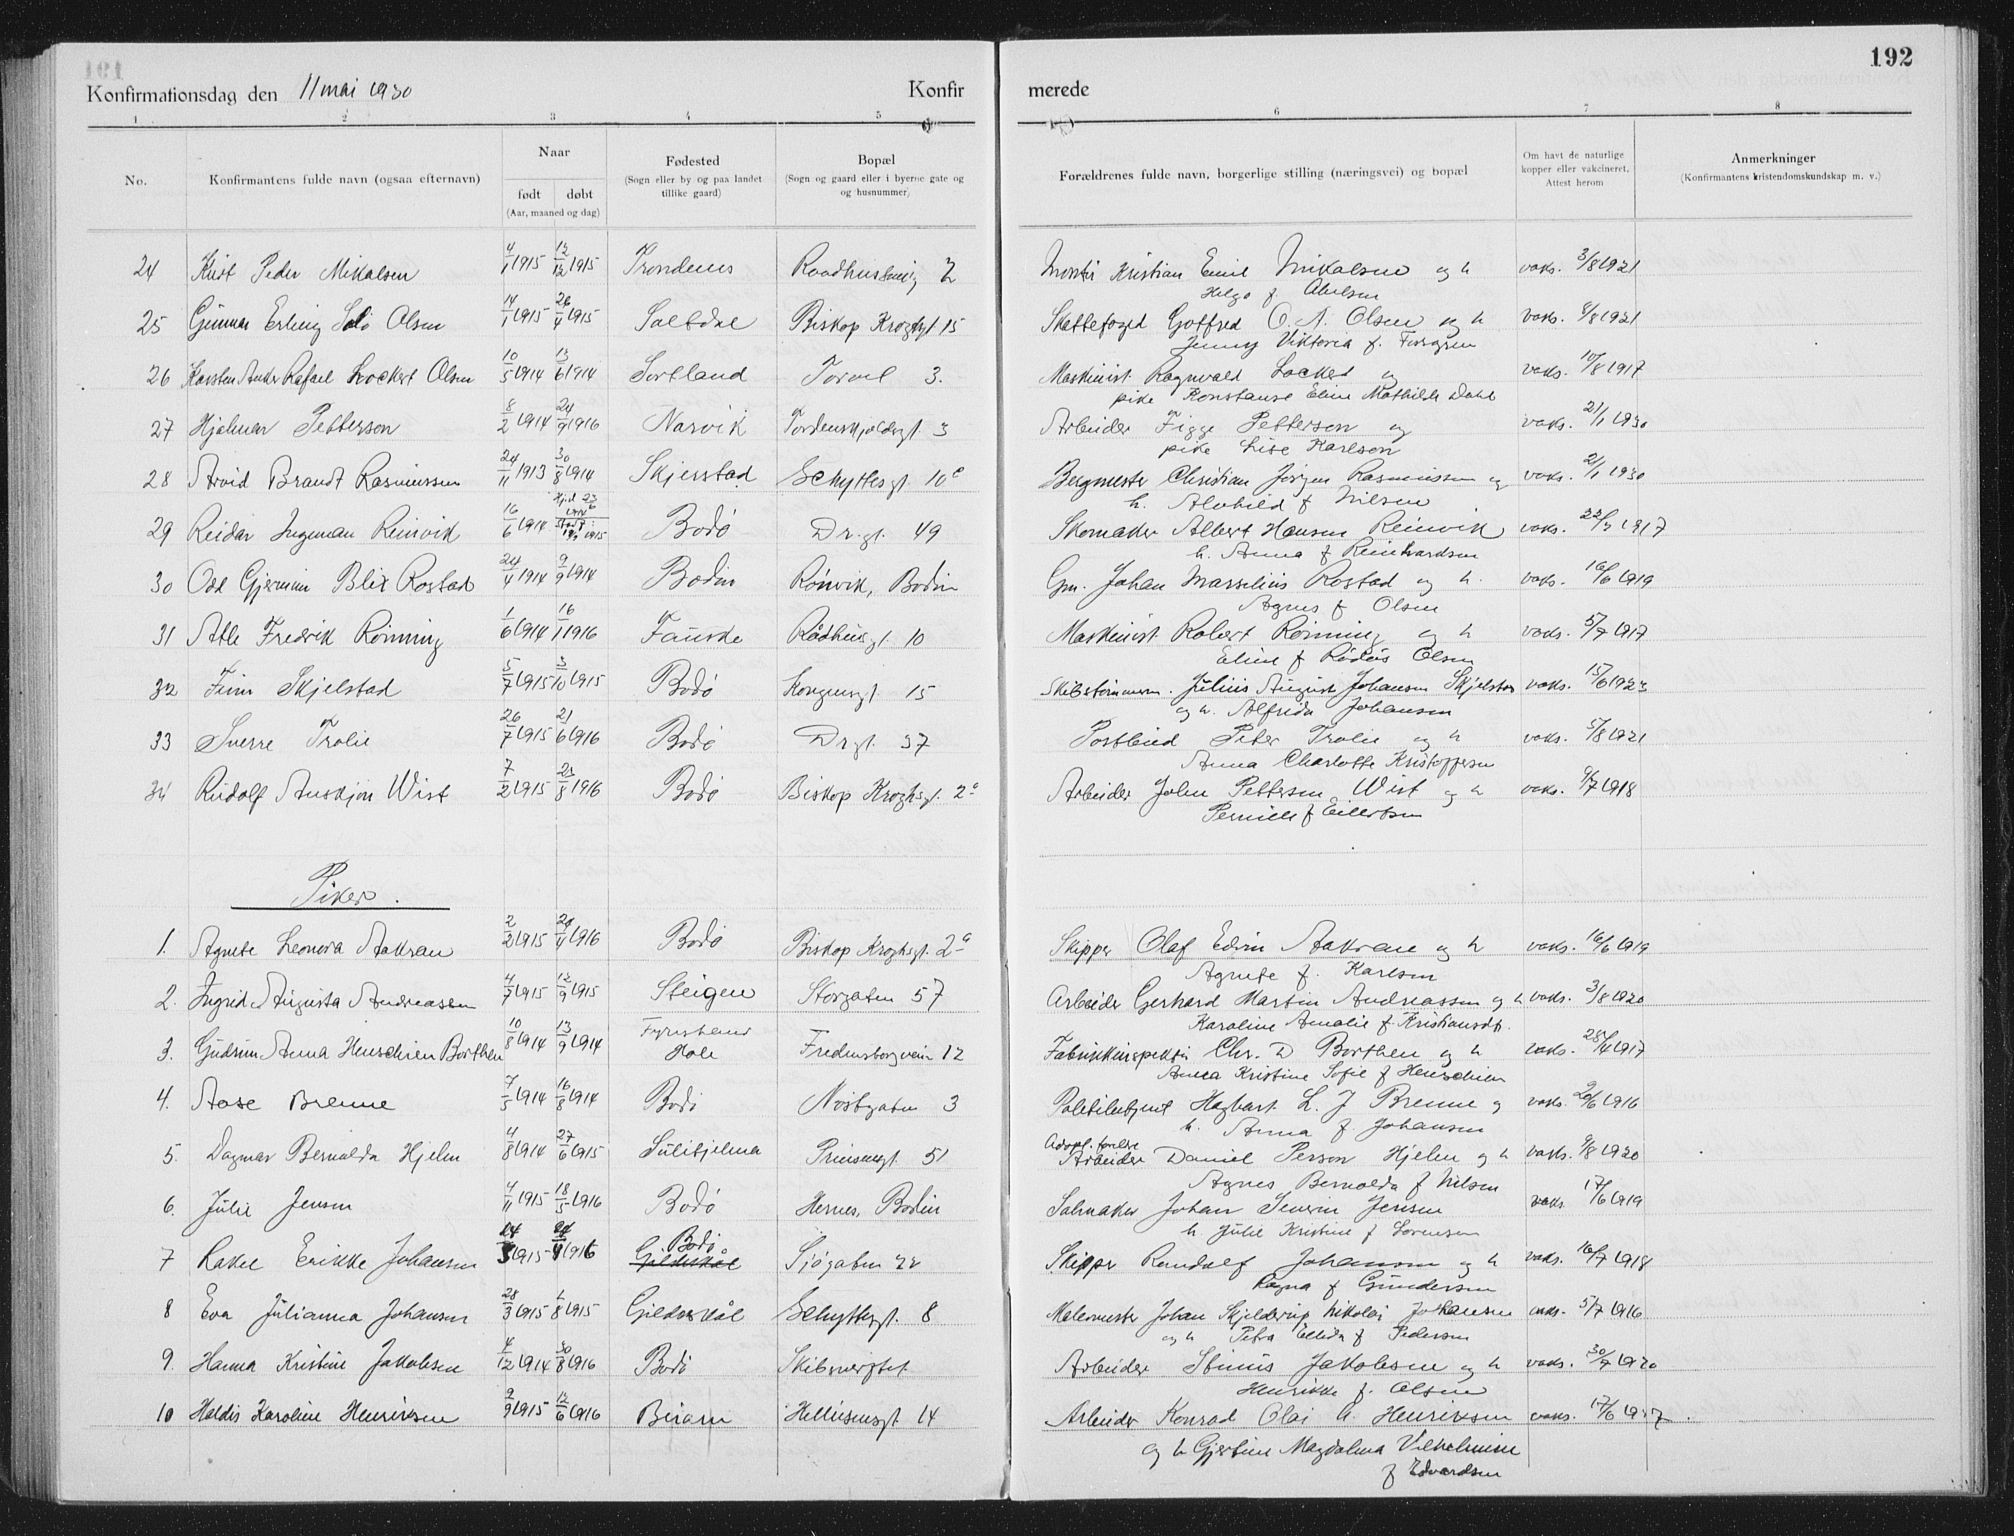 192
Konfirmationsdag den 11 mai 1930
Konfir
merede
1 2 3 4 5 6 7 8
No.
Konfirmantens fulde navn (ogsaa efternavn)
Naar
født døbt
(Aar, maaned og dag)
Fødested
(Sogn eller by og paa landet
tillike gaard)
Bopæl
(Sogn og gaard eller i byerne gate og
og husnummer)
Forældrenes fulde navn, borgerlige stilling (næringsvei) og bopæl
Om havt de naturlige
kopper eller vakcineret,
Attest herom
Anmerkninger
(Konfirmantens kristendomskundskap m. v.)
24 Peder Mikalsen 4/1 1915 12/12 1915 Trondenes 2 Kristian Emil Mikalsen og h vaks. 3/8 1921
25 Gunnar Erling Olsen 14/1 1915 26/4 1915 Saltdal Biskop Kroghsgt 15 Skattefoged Gotfred O. A. Olsen og h vaks. 8/8 1921
Jenny Viktoria f.
26 Karsten Rafael Lockert Olsen 10/5 1914 13/6 1914 Sortland Torvet 3. Maskinist Ragnvald Lockert og vaks. 10/8 1917
pike Konstanse Eline Mathilde Dahl
27 Hjalmar Petterson 8/2 1914 24/9 1916 Narvik Tordenskjoldsgt. 3 Arbeider Figge Petterson og vaks. 21/1 1930
pike Lise Karlson
28 Arvid Brandt Rasmussen 24/11 1913 30/8 1914 Skjerstad Schyttesgt. 10c Bergmester Christian Jørgen Rasmussen og vaks. 2/1 1930
h. Alvhild f Nilsen
29 Reidar Ingeman Reinvik 16/6 1914 Bodø Dr.gt. 49 Skomaker Albert Hansen Reinvik vaks. 22/7 1917
h. Anna f Reinhardsen
30 Odd Gjermin Blix Rostad 24/4 1914 9/9 1914 Bodin Rønvik, Bodin Gm. Johan Marselius Rostad og h. vaks. 16/6 1919
Agnes f Olsen
31 Atle Fredrik Rønning 1/6 1914 16/1 1916 Fauske Rådhusgt. 10 Maskinist Robert Rønning og h vaks. 5/7 1917
Eline f Olsen
32 Finn Skjelstad 5/7 1915 3/10 1915 Bodø Kongensgt. 15 Skibstømmerm. Julius August Johansen Skjelstad vaks. 15/6 1923
og h. Alfrida Johansen
33 Sverre Trolie 26/7 1915 21/6 1916 Bodø Drgt. 37 Postbud Peter Trolie og h vaks. 5/8 1921
Anna Charlotte Kristoffersen
34 Rudolf Anskjøn Wist 7/2 1915 23/8 1916 Bodø Biskop Kroghsgt. 2a Arbeider John Pettersen Wist og h vaks. 9/7 1918
Pernille f Eilertsen
Piker.
1. Agnete Leonora Aakran 2/2 1915 24/4 1916 Bodø Biskop Kroghsgt. 2a Skipper Olaf Edvin Aakran og h vaks. 16/6 1919
Agnete f. Karlsen
2. Ingrid Augusta Andreassen 4/7 1915 12/9 1915 Steigen Storgaten 57 Arbeider Gerhard Martin Andreassen og h vaks. 3/8 1920
Karoline Amalie f Kristiansdt.
3. Gudrun Anna Henschien Borthen 10/8 1914 13/9 1914 Hole Fredensborgveien 12 Fabrikkinspektør Chr. D Borthen og h vaks. 28/4 1917
Anna Kristine Sofie f Henschien
4. Aase Brenne 7/5 1914 16/8 1914 Bodø 3 Politibetjent Hagbart L. J Brenne og vaks. 20/6 1916
h. Anna f Johansen
5. Dagmar Bernolda Hjelm 4/8 1914 27/6 1915 Sulitjelma Prinsensgt. 51 Adopt. forældre Arbeider Daniel Person Hjelm og h vaks. 9/8 1920
Agnes Bernolda f Nilsen
6. Julie Jensen 4/11 1915 18/5 1916 Bodø Hernes, Bodin Salmaker Johan Severin Jensen vaks 17/6 1919
h Julie Kristine f Sørensen
7 Rakel Erikke Johansen 24/3 1915 24/4 1916 Bodø Gildeskål Sjøgaten 22 Skipper Randolf Johansen og h vaks. 16/7 1918
Ragna f Gundersen
8 Eva Julianna Johansen 28/3 1915 1/8 1915 Gildeskål Schyttesgt. 8 Malermester Johan Skjelderup Nikolai Johansen vaks. 5/7 1916
og h Petra Ellida f Pedersen
9. Hanna Kristine Jakobsen 4/12 1914 30/8 1916 Bodø Skibsverftet Arbeider Stinus Jakobsen og h vaks. 30/7 1920
Henrikke f. Olsen
10 Haldis Karoline Henriksen 9/9 1915 12/6 1916 Beiarn Hellusensgt. 14 Arbeider Konrad Olai A. Henriksen vaks. 17/6 1927
og h Gjertine Magdalena Vilhelmine
f Edvardsen